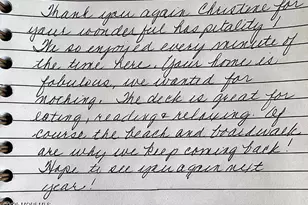 Thank you again Christine for
your wonderful hospitality!
We so enjoyed every minute of
the time here. Your home is
fabulous, we wanted for
nothing. The deck is great for
eating, reading & relaxing. Of
course the beach and boardwalk
are why we keep coming back!
Hope to see you again next
year!